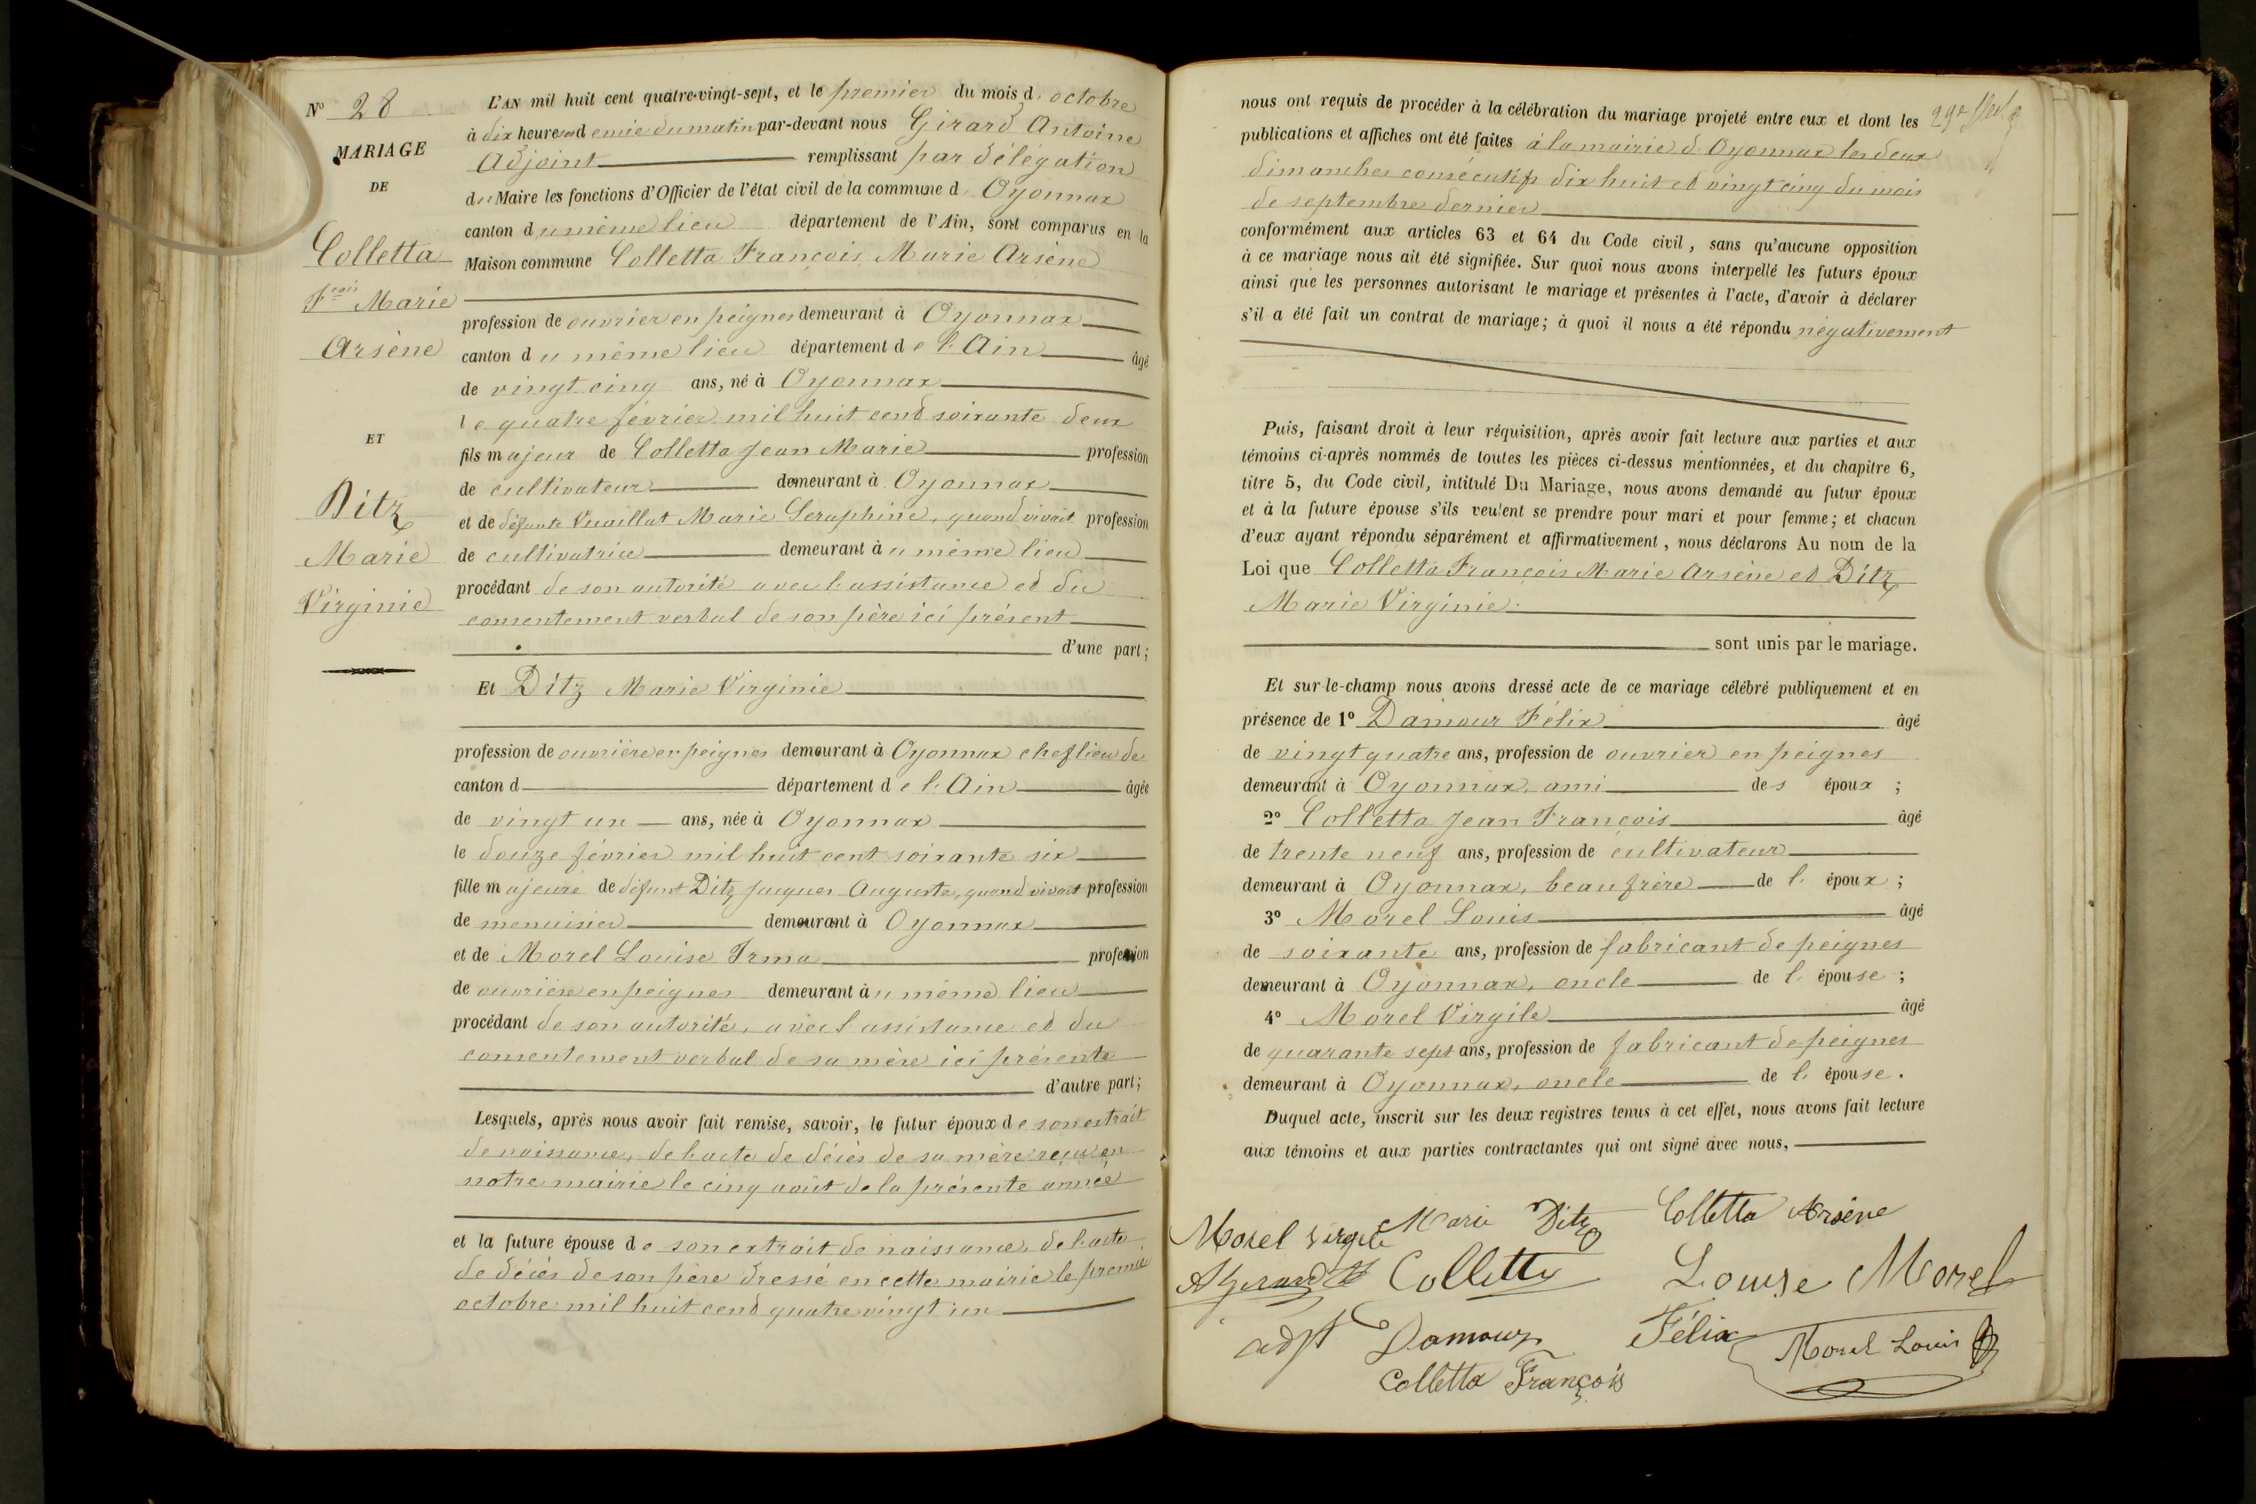 N° 28
MARIAGE
DE
Colletta
Fçois Marie
Arsène
ET
Ditz
Marie
Virginie
L'AN mil huit cent quatre-vingt-sept, et le premier du mois d'octobre
à dix heures et demie du matin par-devant nous Girard Antoine
Adjoint remplissant par délégation
du Maire les fonctions d'Officier de l'état civil de la commune d'Oyonnax
canton du même lieu département de l'Ain, sont comparus en la
Maison commune Colletta François Marie Arsène
profession de ouvrier en peignes demeurant à Oyonnax
canton du même lieu département de l'Ain âgé
de vingt cinq ans, né à Oyonnax
le quatre février mil huit cent soixante deux
fils majeur de Colletta Jean Marie profession
de cultivateur demeurant à Oyonnax
et de défunte Vuaillat Marie Seraphine, quand vivait profession
de cultivatrice demeurant à u même lieu
procédant de son autorité avec l'assistance et du
consentement verbal de son père ici présent
d'une part;
Et Ditz Marie Virginie
profession de ouvrière en peignes demeurant à Oyonnax chef lieu de
canton d département de l'Ain âgée
de vingt un ans, née à Oyonnax
le douze février mil huit cent soixante six
fille majeure de défunt Ditz Jacques Auguste, quand vivait profession
de menuisier demeurant à Oyonnax
et de Morel Louise Irma profession
de ouvrière en peignes demeurant à u même lieu
procédant de son autorité, avec l'assistance et du
consentement verbal de sa mère ici présente
d'autre part;
Lesquels, après nous avoir fait remise, savoir, le futur époux de son extrait
de naissance, de l'acte de décès de sa mère reçu en
notre mairie le cinq août de la présente année
et la future épouse de son extrait de naissance, de l'acte
de décès de son père dressé en cette mairie le premier
octobre mil huit cent quatre vingt un
nous ont requis de procéder à la célébration du mariage projeté entre eux et dont les
publications et affiches ont été faites à la mairie d'Oyonnax les deux
dimanches consécutifs dix huit et vingt cinq du mois
de septembre dernier
conformément aux articles 63 et 64 du Code civil, sans qu'aucune opposition
à ce mariage nous ait été signifiée. Sur quoi nous avons interpellé les futurs époux
ainsi que les personnes autorisant le mariage et présentes à l'acte, d'avoir à déclarer
s'il a été fait un contrat de mariage; à quoi il nous a été répondu négativement
Puis, faisant droit à leur réquisition, après avoir fait lecture aux parties et aux
témoins ci-après nommés de toutes les pièces ci-dessus mentionnées, et du chapitre 6,
titre 5, du Code civil, intitulé Du Mariage, nous avons demandé au futur époux
et à la future épouse s'ils veulent se prendre pour mari et pour femme; et chacun
d'eux ayant répondu séparément et affirmativement, nous déclarons Au nom de la
Loi que Colletta François Marie Arsène et Ditz
Marie Virginie
sont unis par le mariage.
Et sur-le-champ nous avons dressé acte de ce mariage célébré publiquement et en
présence de 1° Damour Félix âgé
de vingt quatre ans, profession de ouvrier en peignes
demeurant à Oyonnax ami des époux;
2° Colletta Jean François âgé
de trente neuf ans, profession de cultivateur
demeurant à Oyonnax, beau frère de l'époux;
3° Morel Louis âgé
de soixante ans, profession de fabricant de peignes
demeurant à Oyonnax, oncle de l'épouse;
4° Morel Virgile âgé
de quarante sept ans, profession de fabricant de peignes
demeurant à Oyonnax, oncle de l'épouse.
Duquel acte, inscrit sur les deux registres tenus à cet effet, nous avons fait lecture
aux témoins et aux parties contractantes qui ont signé avec nous,
Morel Virgile Marie Ditz Colletta Arsène
AGirard Colletta Louise Morel
adjt Damour Félix Morel Louis
Colletta François